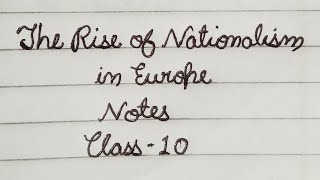 The Rise of Nationalism
in Europe
Notes
Class-10